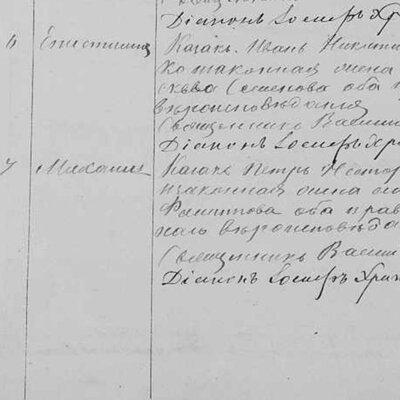 Діаконъ Іосифъ Хр
6 Епистимия Казакъ Иванъ Никити
законная жена
Семенова оба
вѣроисповѣданія
Священникъ Васили
Діаконъ Іосифъ Хри
7 Михаилъ Казакъ Петръ Нестор
законная жена
Филиппова оба прав
наго вѣроисповѣда
Священникъ Васи
Діаконъ Іосифъ Хри